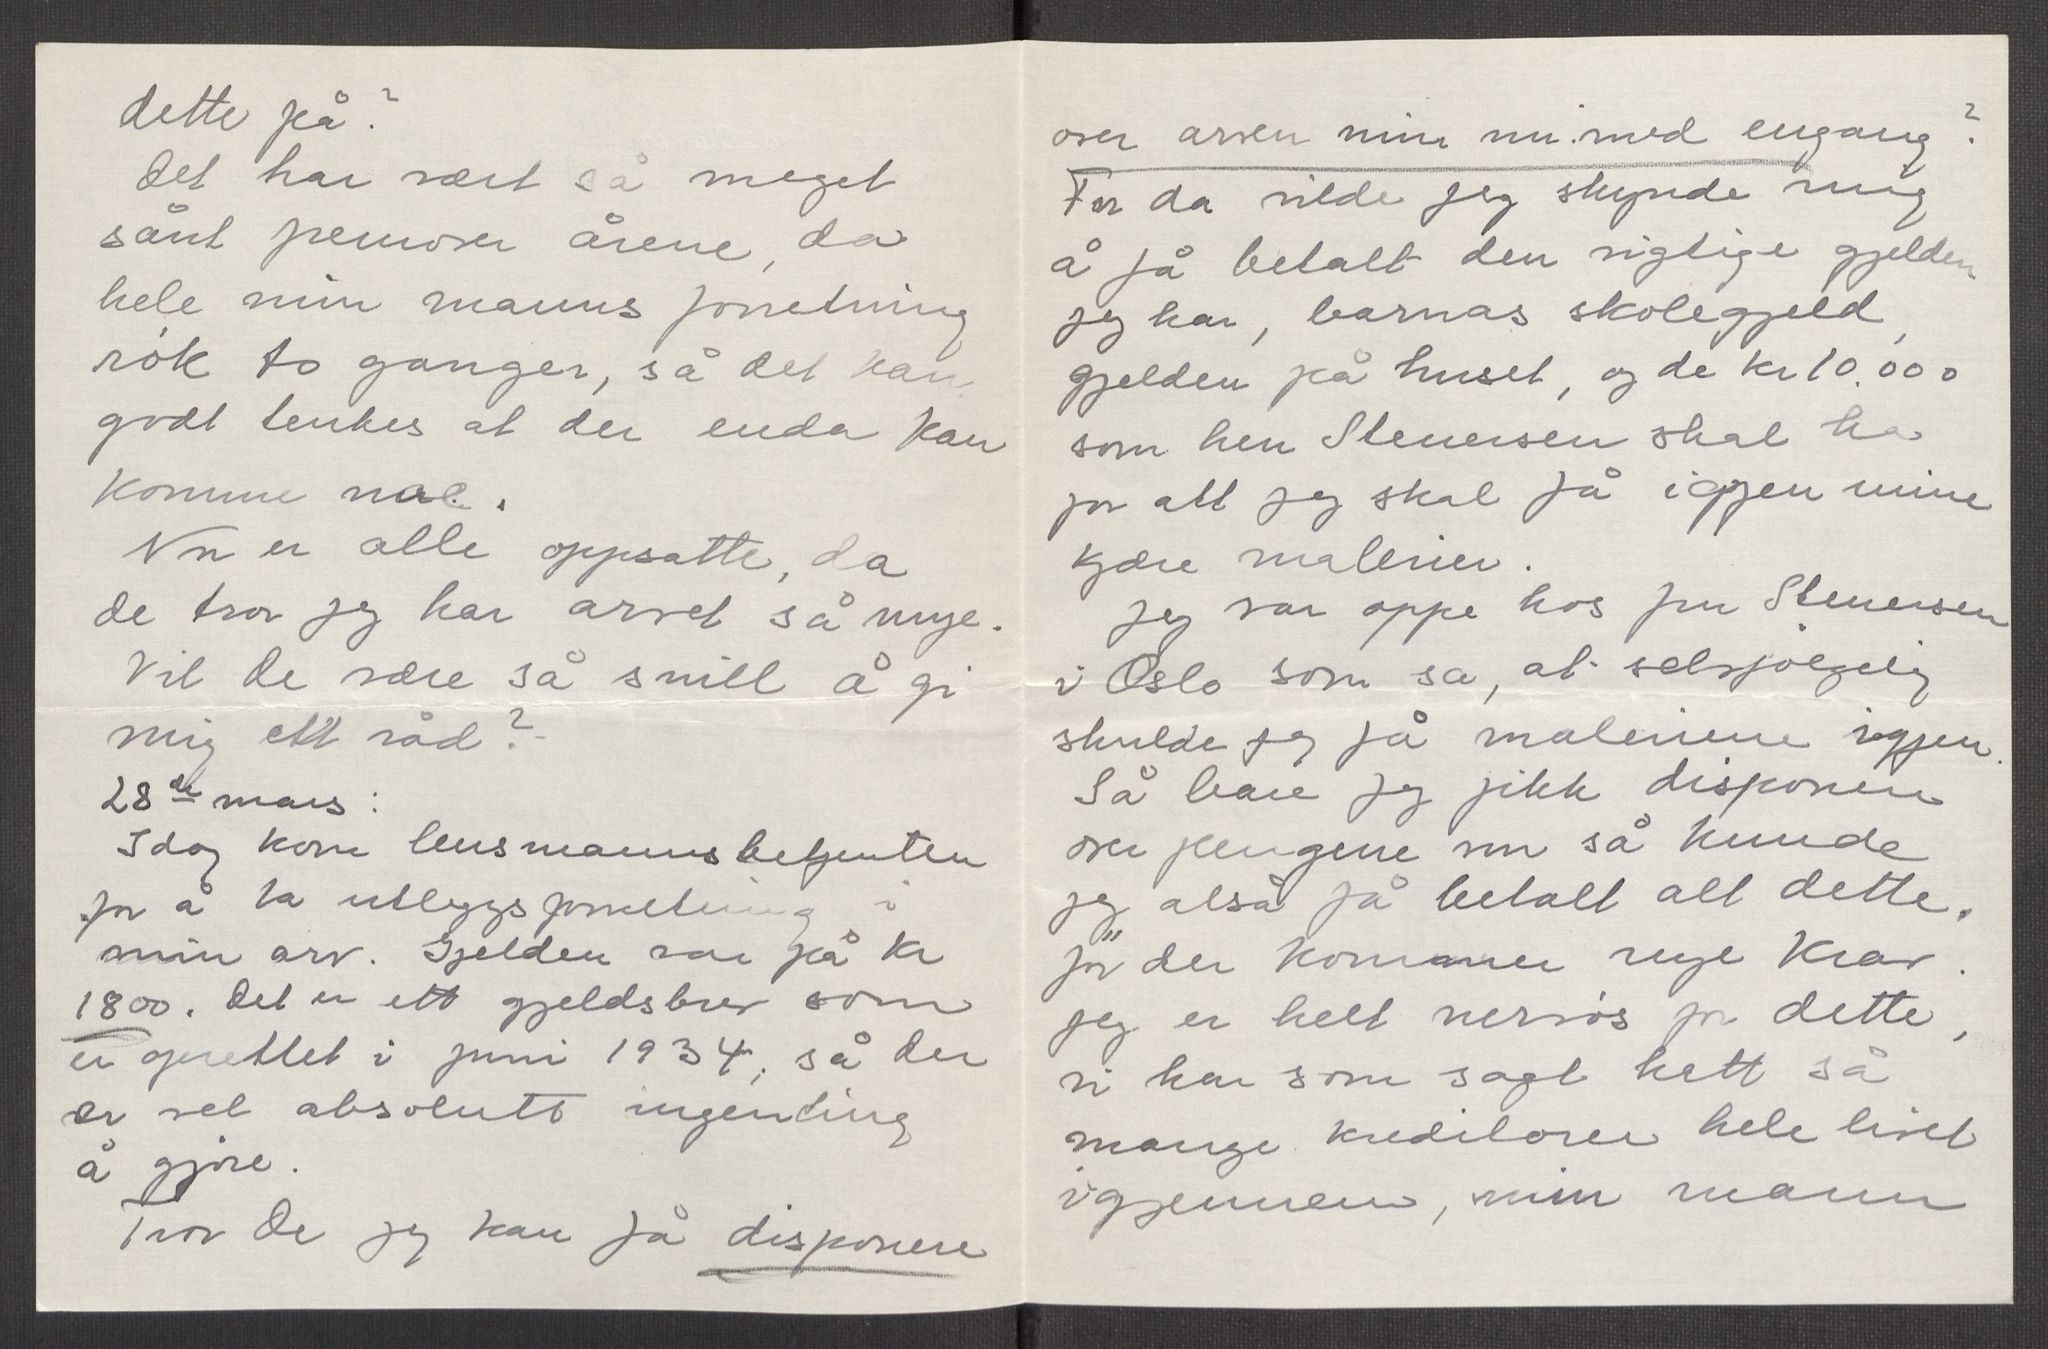 dette på?
Det har vært så meget
sånt penrover årene, da
hele min manns forretning
røk to ganger, så det kan
godt tenkes at der enda kan
komme noe.
Nu er alle oppsatte, da
de tror jeg har arvet så mye.
Vil De være så snill å gi
mig ett råd?
28de mars:
Idag kom lensmannsbetjenten
for å ta utleggsforretning i
min arv. Gjelden var på kr
1800. Det er ett gjeldsbrev som
er oprettet i juni 1934, så der
er vel absolutt ingenting
å gjøre.
Tror De jeg kan få disponere
over arven min nu med engang?
For da vilde jeg skynde mig
å få betalt den rigtige gjelden
jeg har, barnas skolegjeld,
gjelden på huset, og de kr 10.000
som herr Stenersen skal ha
for att jeg skal få igjen mine
kjære malerier.
Jeg var oppe hos fru Stenersen
i Oslo som sa, at selvfølgelig
skulde jeg få maleriene igjen.
Så bare jeg fikk disponere
over pengene nu så kunde
jeg altså få betalt alt dette,
før der kommer nye krav.
Jeg er helt nervøs for dette,
vi har som sagt hatt så
mange kreditorer hele livet
igjennem, min mann